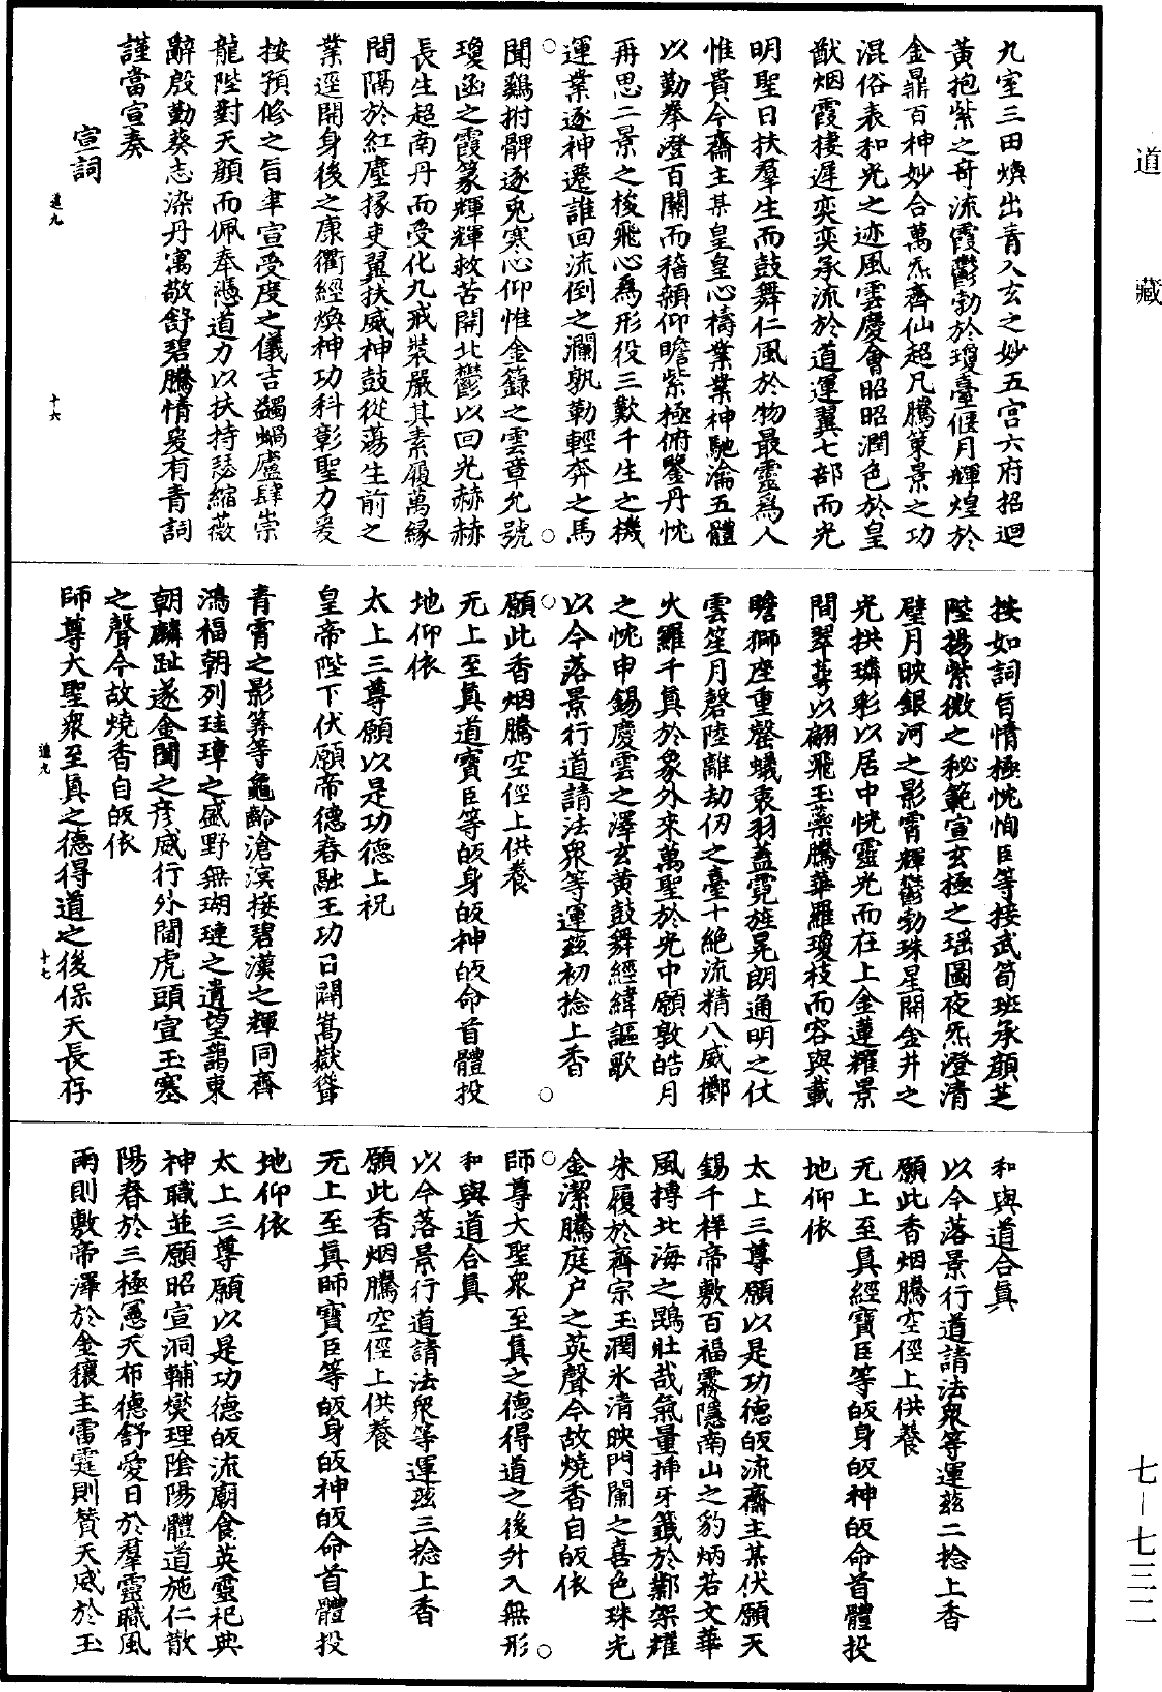 道藏
九室三田煥出青入玄之妙五宫六府招迴
黃抱紫之奇流霞鬱勃於瓊臺偃月輝煌於
金鼎百神妙合萬炁齊仙超凡騰策景之功
混俗表和光之迹風雲慶會昭昭潤色於皇
猷烟霞棲遲奕奕承流於道運翼七部而光
明聖日扶羣生而鼓舞仁風於物最靈爲人
惟貴今齋主某皇皇心禱業業神馳淪五體
以勤拳澄百關而稽顙仰瞻紫極俯鑒丹忱
再思二景之梭飛心爲形役三歎千生之機
運業逐神遷誰回流倒之瀾孰勒輕奔之馬
聞鷄拊髀逐兎寒心仰惟金籙之雲章允號
瓊函之霞篆輝輝救苦開北鬱以回光赫赫
長生超南丹而受化九戒裝嚴其素履萬緣
間隔於紅塵掾吏翼扶威神鼓從蕩生前之
業逕開身後之康衢經煥神功科彰聖力爰
按預修之旨聿宣受度之儀吉蠲蝸廬肆崇
龍陛對天顏而佩奉憑道力以扶持瑟縮薇
辭殷勤葵志染丹寓敬舒碧騰情爰有青詞
謹當宣奏
宣詞
道九
十六
按如詞旨情極忱恂臣等接武筍班承顏芝
陛揚紫微之秘範宣玄極之瑶圖夜炁澄清
璧月映銀河之影霄輝鬱勃珠星開金井之
光拱璘彩以居中恍靈光而在上金蓮耀景
間翠蕚以翩飛玉蘂騰華羅瓊枝而容與載
瞻獅座重罄蟻衷羽蓋霓旌晃朗通明之仗
雲笙月磬陸離劫仞之臺十絕流精八威擲
火羅千真於象外來萬聖於光中願敦皓月
之忱申錫慶雲之澤玄黄鼓舞經緯謳歌
以今落景行道請法衆等運兹初捻上香
願此香烟騰空徑上供養
无上至真道寶臣等皈身皈神皈命首體投
地仰依
太上三尊願以是功德上祝
皇帝陛下伏願帝德春融王功日闢嵩嶽聳
青霄之影筭等龜齡滄溟接碧漢之輝同齊
鴻福朝列珪璋之盛野無瑚璉之遺望藹東
朝麟趾遂金閨之彦威行外閫虎頭宣玉塞
之聲今故燒香自皈依
師尊大聖衆至真之德得道之後保天長存
道九
十七
和與道合真
以今落景行道請法衆等運兹二捻上香
願此香烟騰空徑上供養
无上至真經寶臣等皈身皈神皈命首體投
地仰依
太上三尊願以是功德皈流齋主某伏願天
錫千祥帝敷百福霧隱南山之豹炳若文華
風搏北海之鵾壯哉氣量插牙籤於鄴架耀
朱履於齊宗玉潤氷清映門闌之喜色珠光
金潔騰庭户之英聲今故燒香自皈依
師尊大聖衆至真之德得道之後升入無形
和與道合真
以今落景行道請法衆等運兹三捻上香
願此香烟騰空徑上供養
无上至真師寶臣等皈身皈神皈命首體投
地仰依
太上三尊願以是功德皈流廟食英靈祀典
神職並願昭宣洞輔爕理陰陽體道施仁散
陽春於三極憲天布德舒愛日於羣靈職風
雨則敷帝澤於金穰主雷霆則贊天威於玉
七—七三二